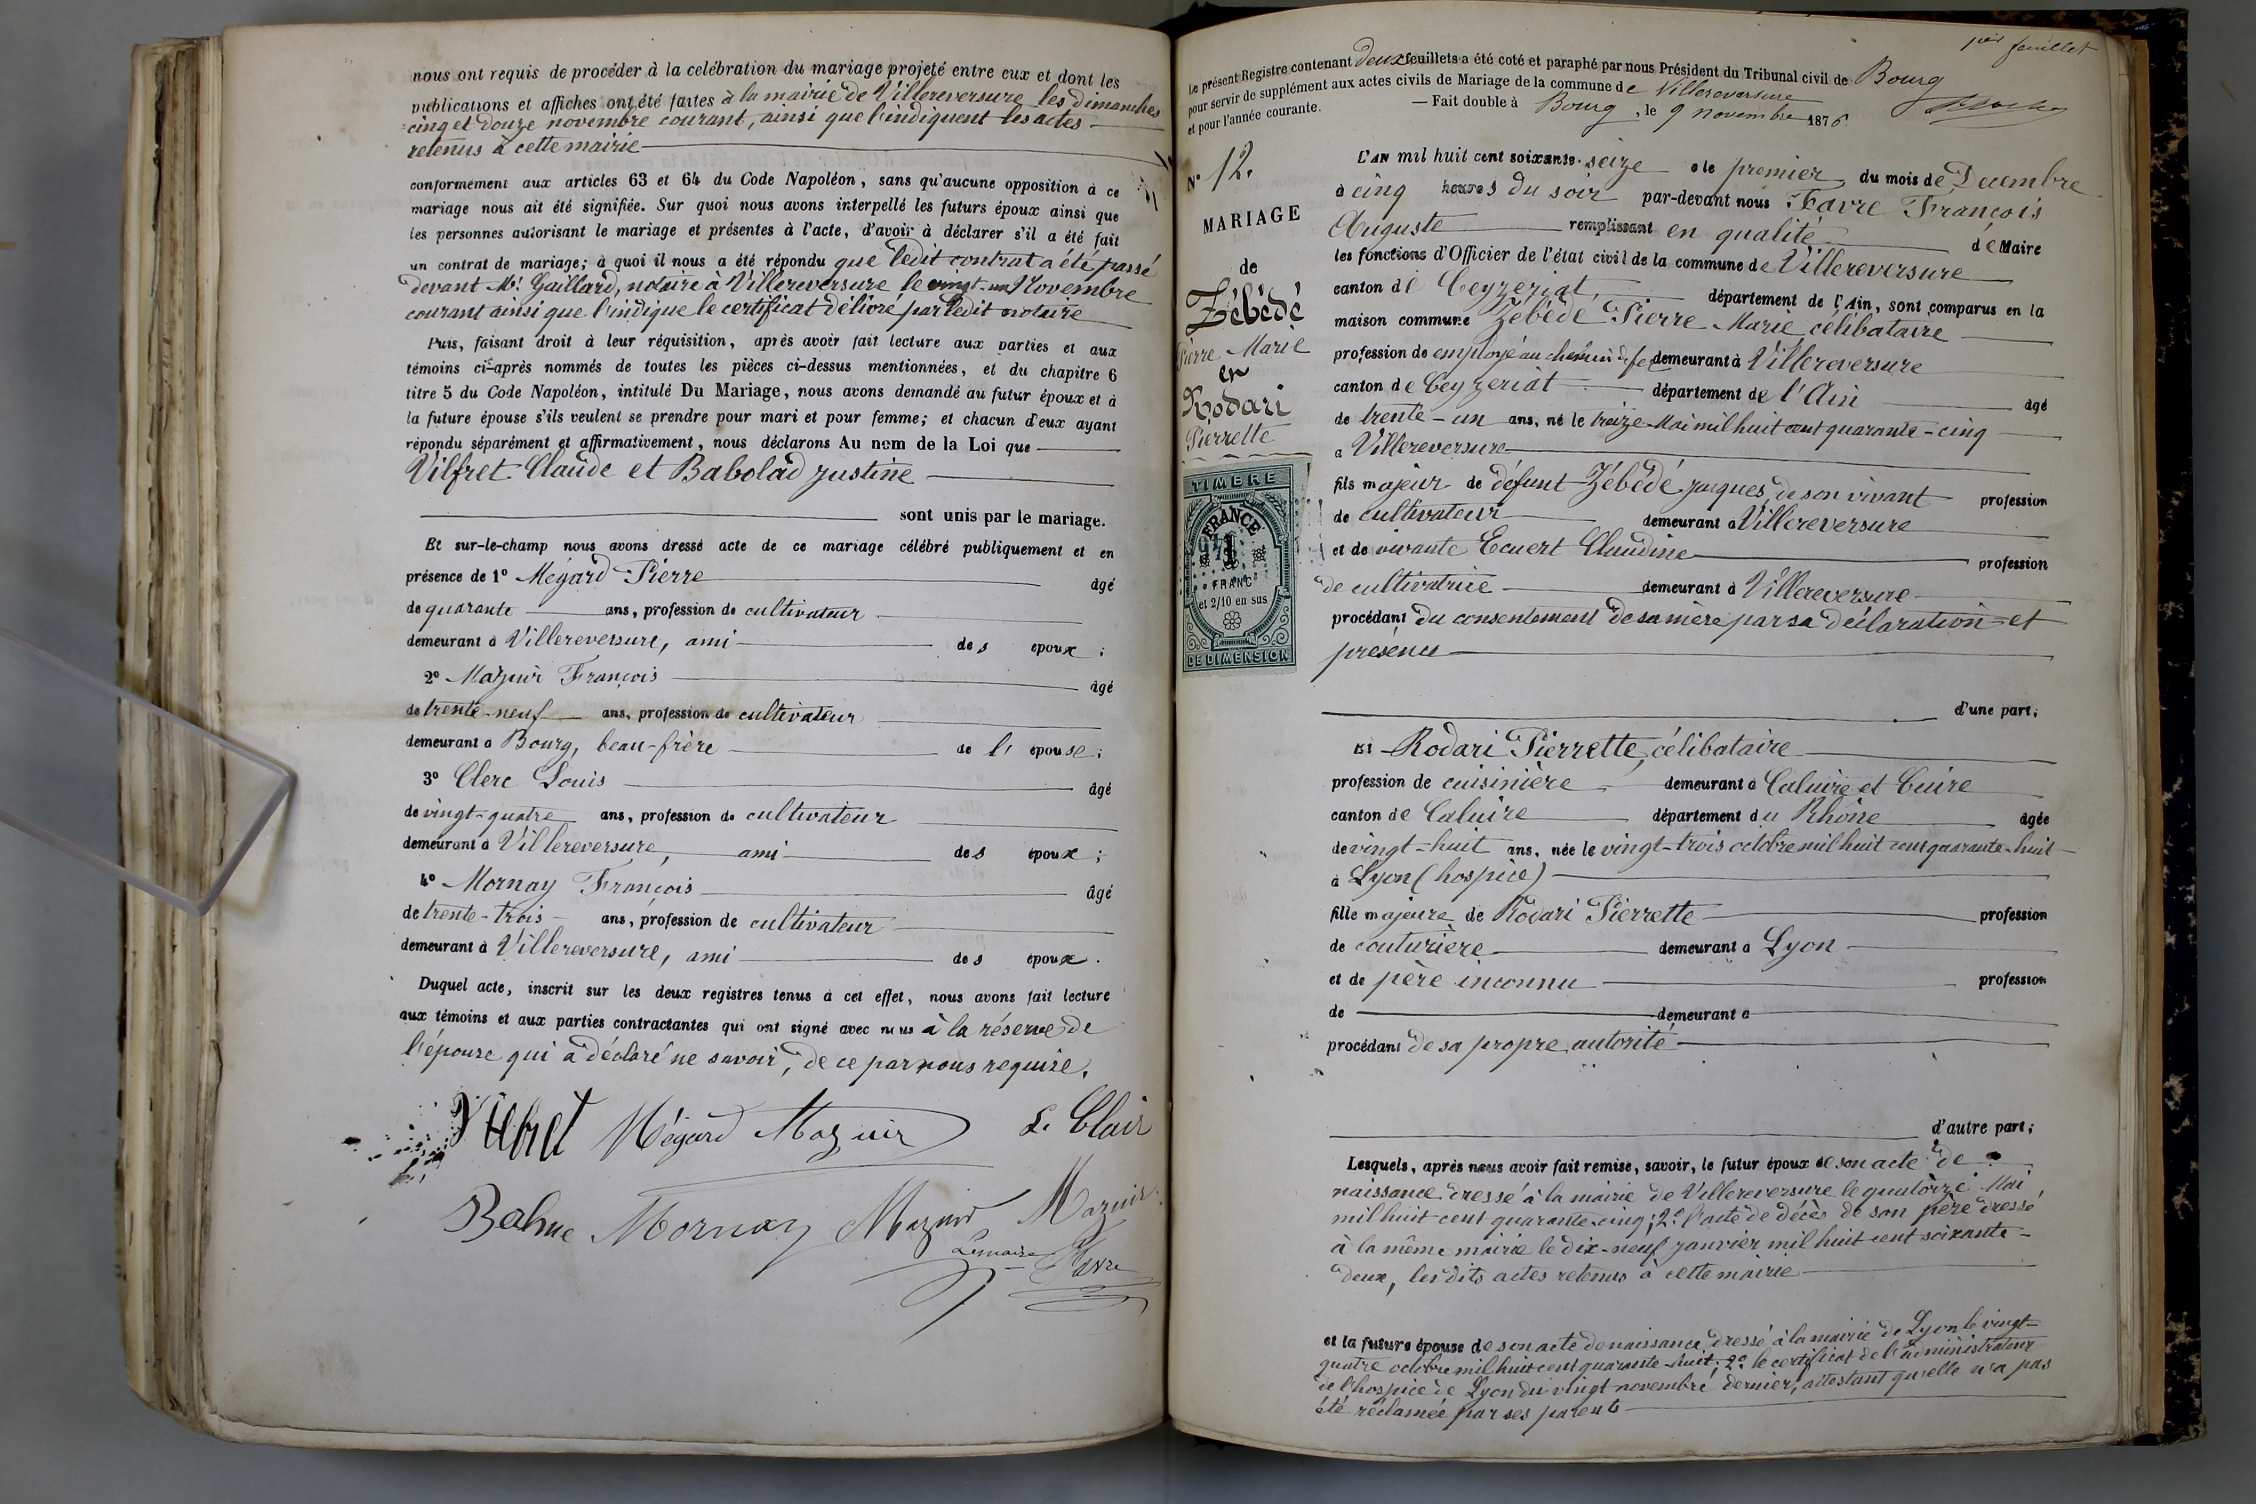 nous ont requis de procéder à la celébration du mariage projeté entre eux et dont les
publications et affiches ont été faites à la mairie de Villereversure les dimanches
cinq et douze novembre courant, ainsi que l'indiquent les actes
retenus à cette mairie
conformément aux articles 63 et 64 du Code Napoléon, sans qu'aucune opposition à ce
mariage nous ait été signifiée. Sur quoi nous avons interpellé les futurs époux ainsi que
les personnes autorisant le mariage et présentes à l'acte, d'avoir à déclarer s'il a été fait
un contrat de mariage; à quoi il nous a été répondu que ledit contrat a été passé
devant Mr. Gaillard, notaire à Villereversure le vingt-un Novembre
courant ainsi que l'indique le certificat délivré par ledit notaire
Puis, faisant droit à leur réquisition, après avoir fait lecture aux parties et aux
témoins ci-après nommés de toutes les pièces ci-dessus mentionnées, et du chapitre 6
titre 5 du Code Napoléon, intitulé Du Mariage, nous avons demandé au futur époux et à
la future épouse s'ils veulent se prendre pour mari et pour femme; et chacun d'eux ayant
répondu séparément et affirmativement, nous déclarons Au nom de la Loi que
Vilfret Claude et Babolad Justine
sont unis par le mariage.
Et sur-le-champ nous avons dressé acte de ce mariage célébré publiquement et en
présence de 1º Mégard Pierre âgé
de quarante ans, profession de cultivateur
demeurant à Villereversure, ami des époux;
2º Mazuir François âgé
de trente-neuf ans, profession de cultivateur
demeurant à Bourg, beau-frère de l'épouse;
3º Clerc Louis âgé
de vingt-quatre ans, profession de cultivateur
demeurant à Villereversure, ami des époux;
4º Mornay François âgé
de trente-trois ans, profession de cultivateur
demeurant à Villereversure, ami des époux.
Duquel acte, inscrit sur les deux registres tenus à cet effet, nous avons fait lecture
aux témoins et aux parties contractantes qui ont signé avec nous à la réserve de
l'épouse qui a déclaré ne savoir, de ce par nous requise.
Vilfret Mégard Mazuir L. Clair
Mornay Mazuir Mazuir
Le maire Favre
1er feuillet
Le présent Registre contenant deux feuillets a été coté et paraphé par nous Président du Tribunal civil de Bourg
pour servir de supplément aux actes civils de Mariage de la commune de Villereversure
et pour l'année courante. — Fait double à Bourg, le 9 novembre 1876
Nº 12.
MARIAGE
de
Zébédé
Pierre Marie
et
Rodari
Pierrette
TIMBRE
FRANCE
1
FRANC
et 2/10 en sus
DE DIMENSION
L'AN mil huit cent soixante-seize le premier du mois de Decembre
à cinq heures du soir par-devant nous Favre François
Auguste remplissant en qualité de Maire
les fonctions d'Officier de l'état civil de la commune de Villereversure
canton de Ceyzeriat département de l'Ain, sont comparus en la
maison commune Zébédé Pierre Marie célibataire
profession de employé au chemin de fer demeurant à Villereversure
canton de Ceyzeriat département de l'Ain âgé
de trente-un ans, né le treize Mai mil huit cent quarante-cinq
à Villereversure
fils majeur de défunt Zébédé Jacques, de son vivant profession
de cultivateur demeurant à Villereversure
et de vivante Ecuert Claudine profession
de cultivatrice demeurant à Villereversure
procédant du consentement de sa mère par sa déclaration et
présence
d'une part;
Et Rodari Pierrette, célibataire
profession de cuisinière demeurant à Caluire et Cuire
canton de Caluire département du Rhône âgée
de vingt-huit ans, née le vingt-trois octobre mil huit cent quarante-huit
à Lyon (hospice)
fille majeure de Rodari Pierrette profession
de couturière demeurant à Lyon
et de père inconnu profession
de demeurant à
procédant de sa propre autorité
d'autre part;
Lesquels, après nous avoir fait remise, savoir, le futur époux de son acte de
naissance dressé à la mairie de Villereversure le quatorze Mai
mil huit cent quarante-cinq; 2º l'acte de décès de son père dressé
à la même mairie le dix-neuf janvier mil huit cent soixante-
deux, les dits actes retenus à cette mairie
et la future épouse de son acte de naissance dressé à la mairie de Lyon le vingt-
quatre octobre mil huit cent quarante-huit; 2º le certificat de l'administrateur
de l'hospice de Lyon du vingt novembre dernier, attestant qu'elle n'a pas
été réclamée par ses parents